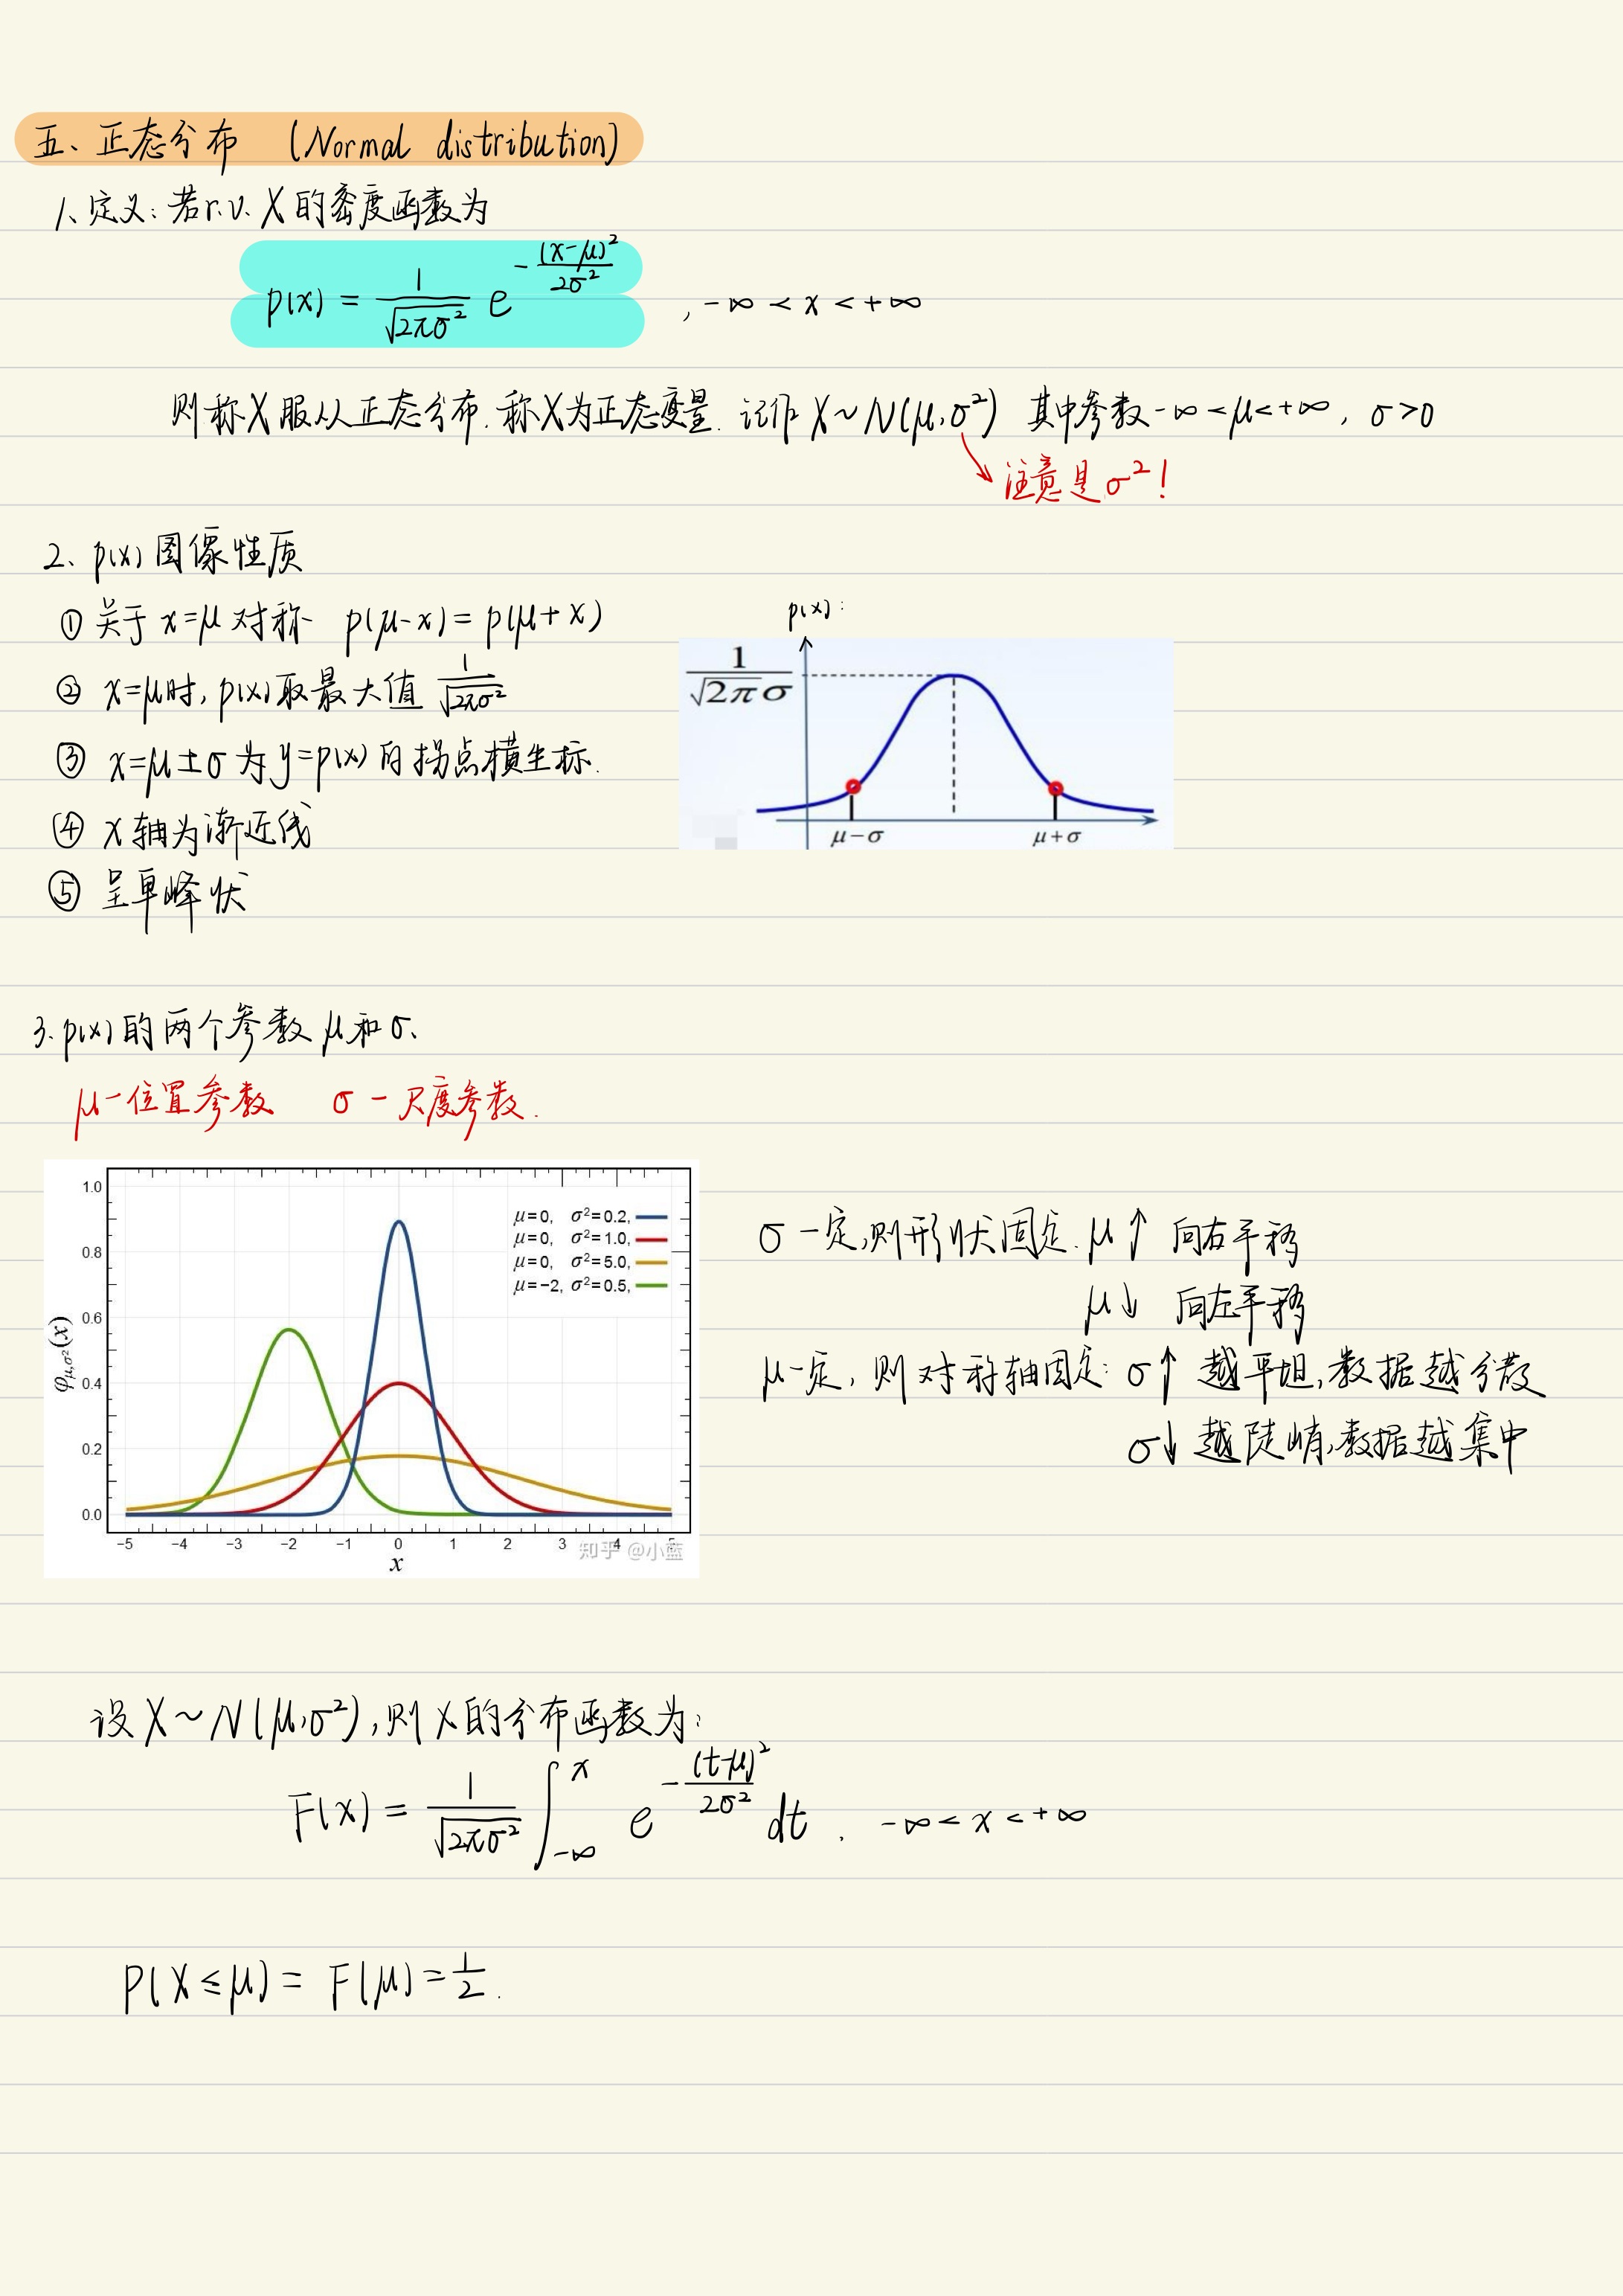 五、正态分布 (Normal distribution)
1、定义：若r.v. X的密度函数为
p(x) = 1/√(2πσ²) e^(-(x-μ)²/(2σ²)) , -∞ < x < +∞
则称X服从正态分布. 称X为正态变量. 记作 X~N(μ,σ²) 其中参数 -∞<μ<+∞, σ>0
注意是σ²!
2、p(x)图像性质
① 关于 x=μ 对称 p(μ-x) = p(μ+x)
② x=μ时, p(x)取最大值 1/√(2πσ²)
③ x=μ±σ 为 y=p(x) 的拐点横坐标.
④ x轴为渐近线
⑤ 呈单峰状
p(x):
1/(√(2π)σ)
μ-σ μ+σ
3. p(x)的两个参数 μ和σ、
μ-位置参数 σ-尺度参数.
μ=0, σ²=0.2,
μ=0, σ²=1.0,
μ=0, σ²=5.0,
μ=-2, σ²=0.5,
φμ,σ²(x)
1.0
0.8
0.6
0.4
0.2
0.0
-5 -4 -3 -2 -1 0 1 2 3 4 5
x
知乎 @小蓝
σ一定,则形状固定. μ↑ 向右平移
μ↓ 向左平移
μ一定, 则对称轴固定: σ↑ 越平坦,数据越分散
σ↓ 越陡峭,数据越集中
设X~N(μ,σ²),则X的分布函数为:
F(x) = 1/√(2πσ²) ∫_{-∞}^{x} e^(-(t-μ)²/(2σ²)) dt , -∞ < x < +∞
P(X≤μ) = F(μ) = 1/2.